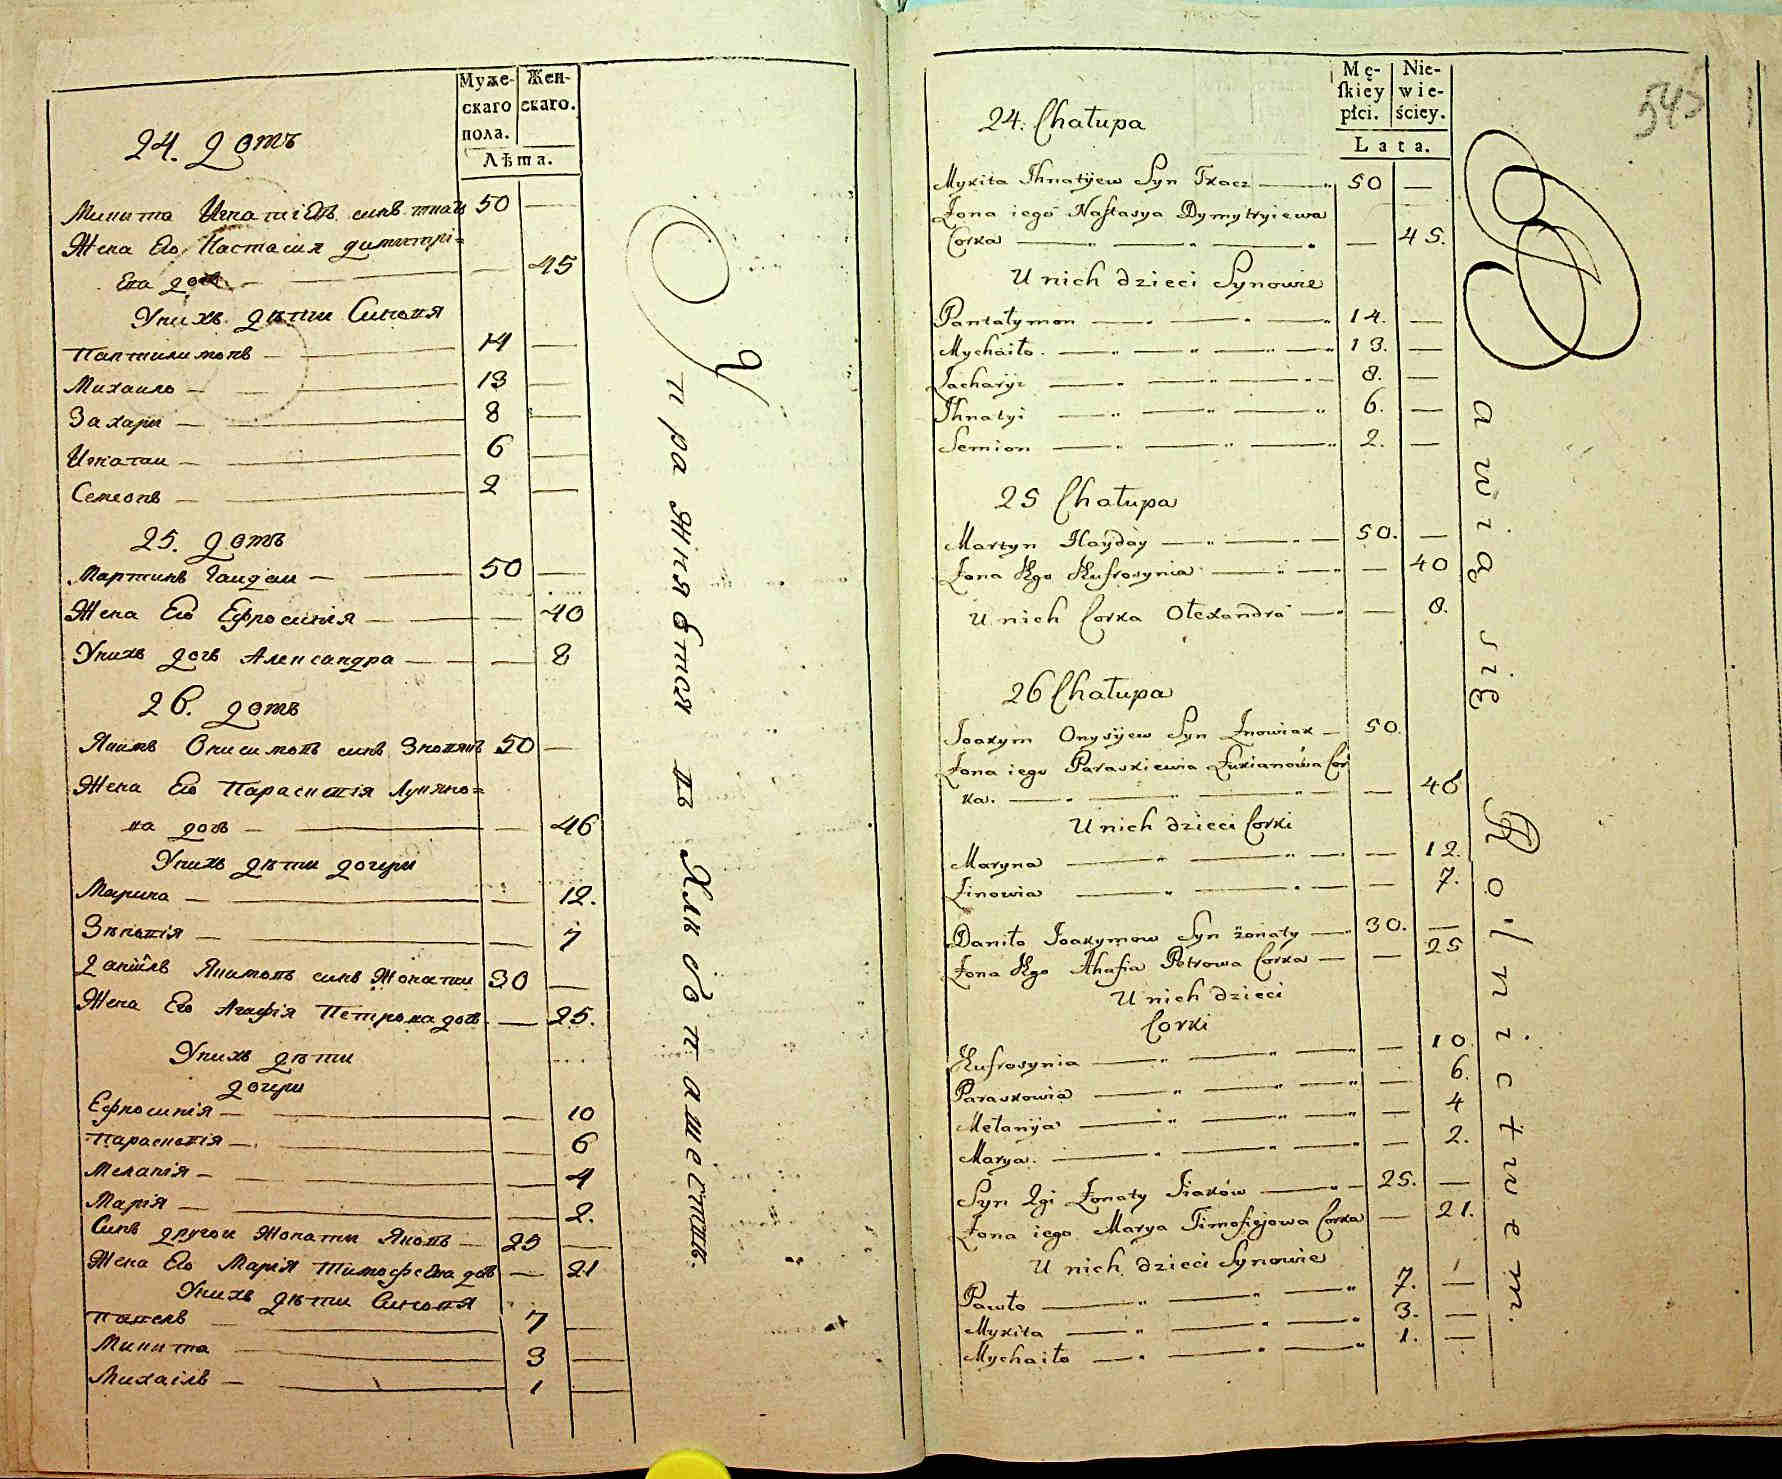 Муже-
скаго
пола.
Жен-
скаго.
Лѣта.
24. Домъ
Микита Игнатіевъ синъ ткачъ 50 —
Жена Его Настасия димитрі=
ева дочь — — 45
У нихъ дѣти Синовя
Пантилимонъ — 14 —
Михаило — 13 —
Захари — 8 —
Игнатии — 6 —
Семеонъ — 2 —
25. Домъ
Мартинъ Гаидаи — 50 —
Жена Его Ефросинія — — 40
У нихъ дочь Александра — — 8
26. Домъ
Якимъ Онисимовъ синъ Зновякъ 50 —
Жена Его Параскевія Лукяно=
ва дочь — — 46
У нихъ дѣти дочери
Марина — — 12.
Зѣновія — — 7
Даніилъ Якимовъ синъ Жонати 30 —
Жена Его Агафія Петрова дочь — 25.
У нихъ дѣти
дочери
Ефросинія — — 10
Парасковія — — 6
Меланія — — 4
Марія — — 2.
Синъ другои Жонати Яковъ — 25 —
Жена Его Марія Тимофеева дочь — 21
У нихъ дѣти Синовя
Павелъ — 7 —
Микита — 3 —
Михаілъ — 1 —
Упражняются въ Хлѣбопашествѣ.
Mę-
skiey
płci.
Nie-
wie-
ściey.
Lata.
545
24. Chałupa
Mykita Ihnatyiew Syn Tkacz — 50 —
Żona iego Nastasya Dymytryiewa
Corka — — 45.
U nich dzieci Synowie
Pantałymon — 14. —
Mychaiło. — 13. —
Zacharyi — 8. —
Ihnatyi — 6. —
Semion — 2. —
25 Chałupa
Martyn Hayday — 50. —
Żona Jego Eufrosynia — — 40
U nich Corka Ołexandra — — 8.
26 Chałupa
Joakym Onysyiew Syn Znowiak — 50.
Żona iego Paraskiewia Łukianowa Cor
ka. — — 46
U nich dzieci Corki
Maryna — — 12.
Zinowia — — 7.
Daniło Joakymow Syn żonaty — 30. —
Żona Jego Ahafia Petrowa Corka — — 25
U nich dzieci
Corki
Eufrosynia — — 10.
Paraskowia — — 6.
Mełanyia — — 4
Marya. — — 2.
Syn 2gi Żonaty Jiaków — 25. —
Żona iego Marya Timofiejowa Corka — 21.
U nich dzieci Synowie
Pawło — 7. —
Mykita — 3. —
Mychaiło — 1. —
Bawią się Rolnictwem.